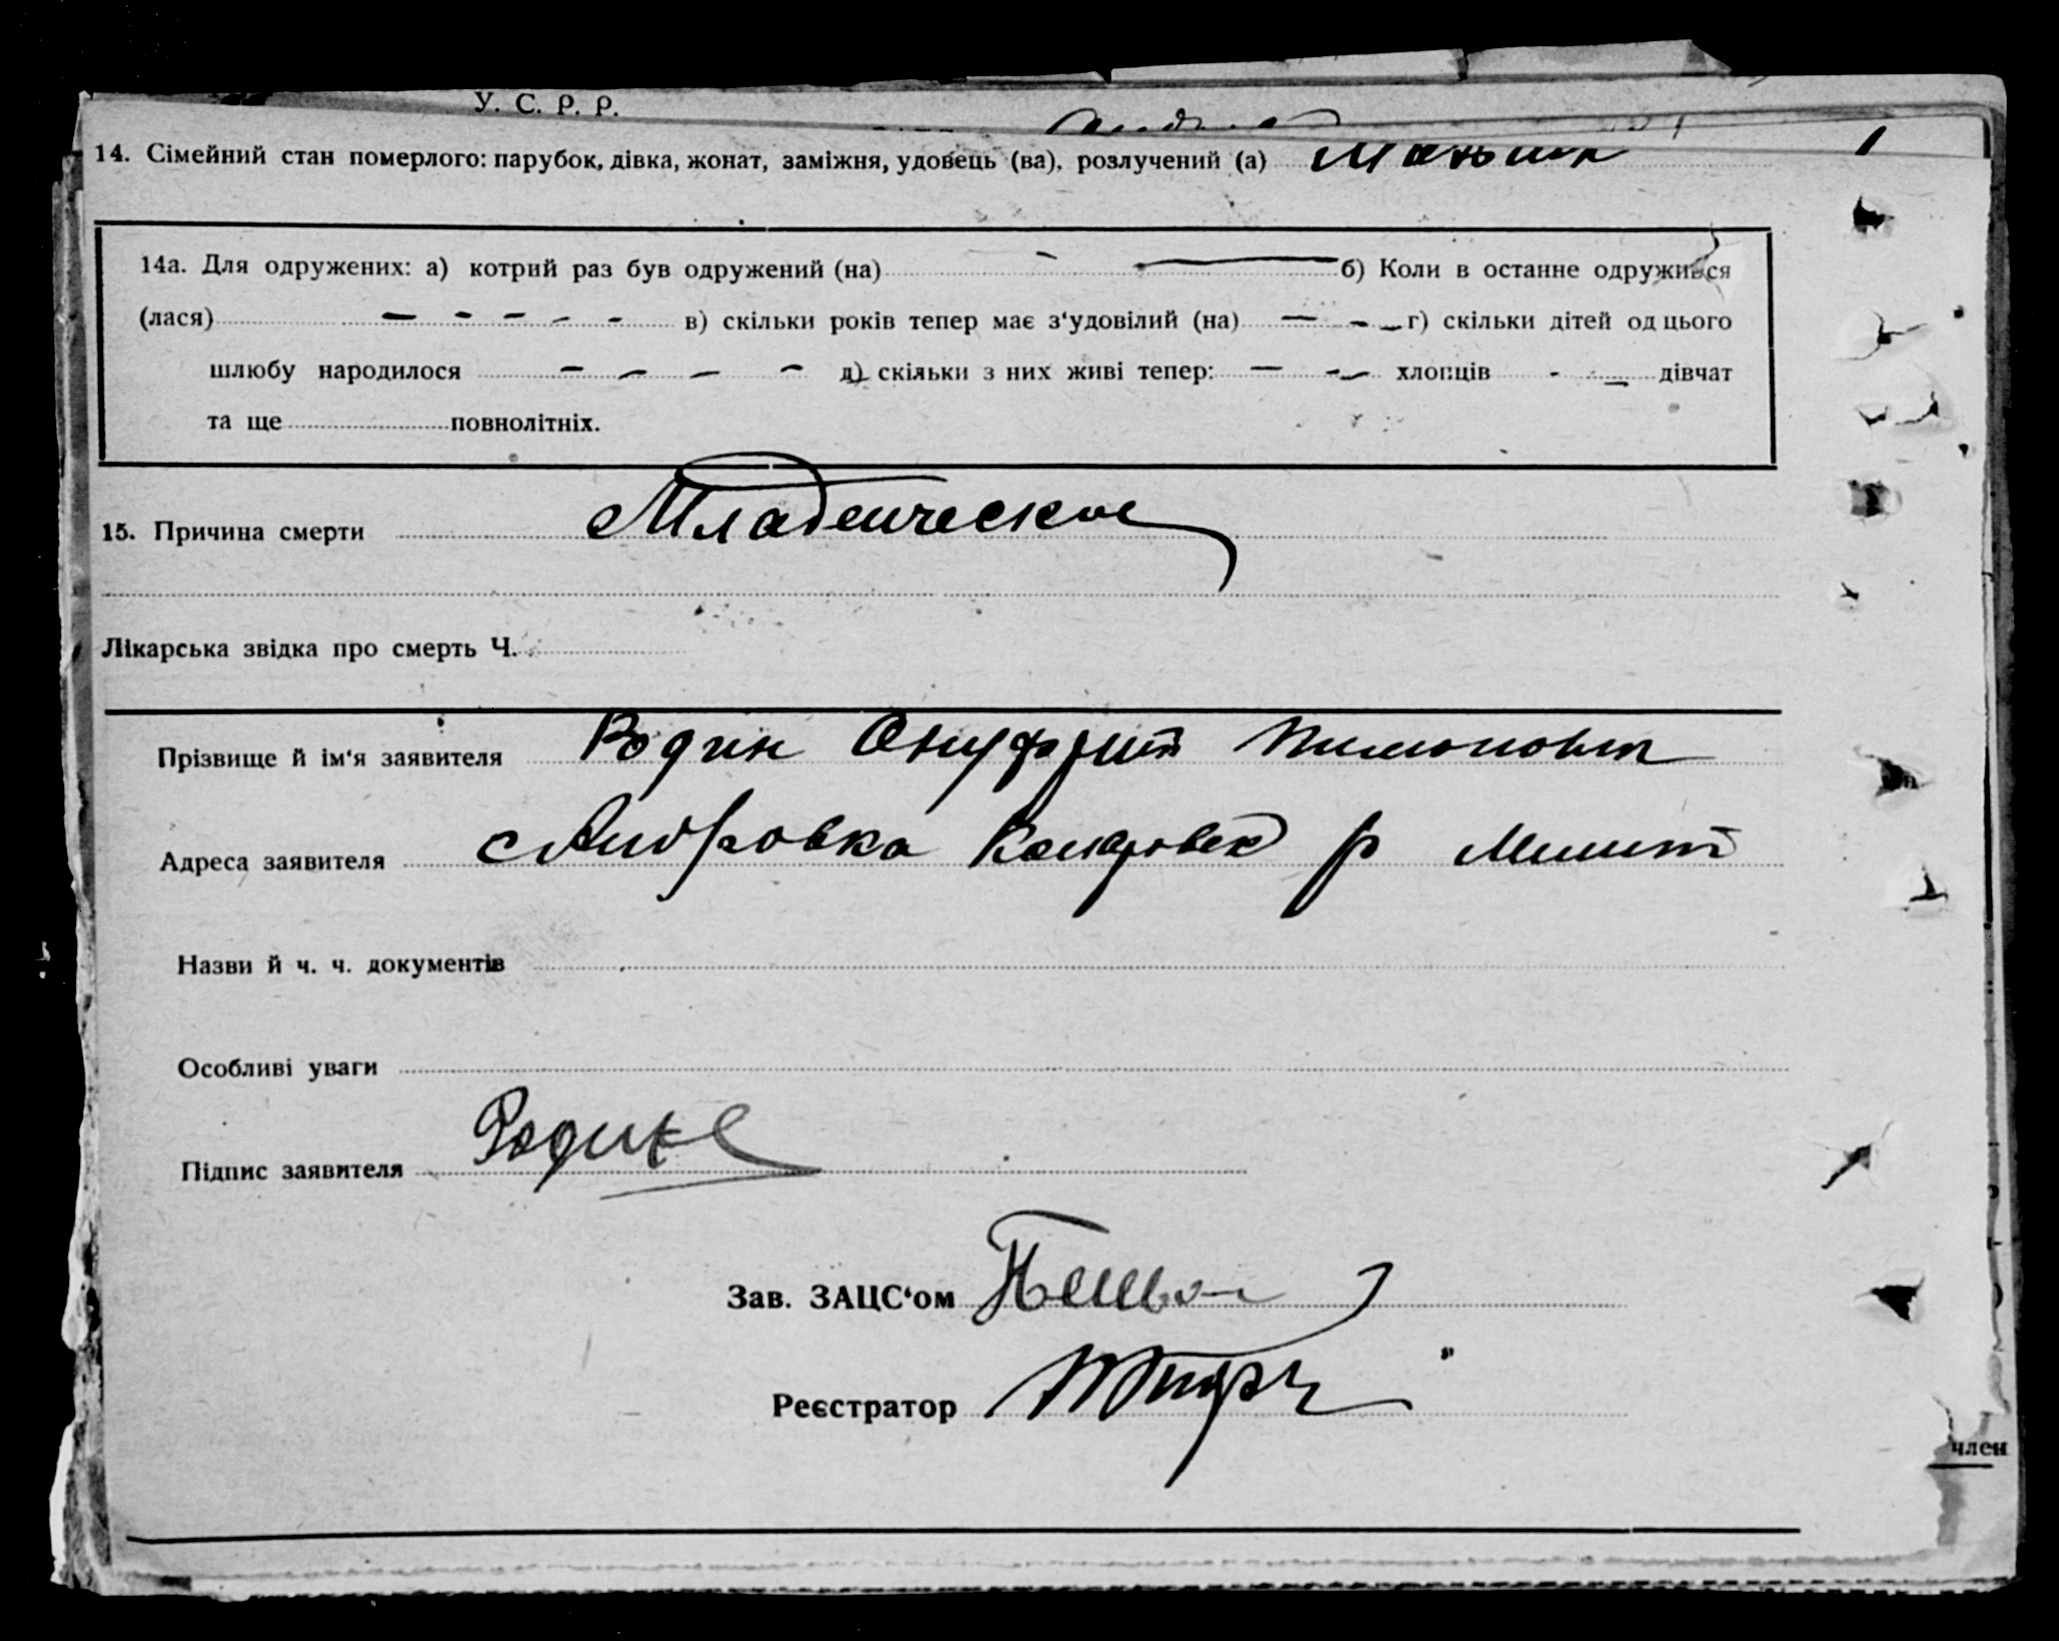 У. С. Р. Р.
14. Сімейний стан померлого: парубок, дівка, жонат, заміжня, удовець (ва), розлучений (а)
14а. Для одружених: а) котрий раз був одружений (на) б) Коли в останне одружився
(лася) в) скільки років тепер має з‘удовілий (на) г) скільки дітей од цього
шлюбу народилося д) скільки з них живі тепер: хлопців дівчат
та ще повнолітніх.
15. Причина смерти Младенческое
Лікарська звідка про смерть Ч.
Прізвище й ім‘я заявителя Родин Онуфрий Пимонович
Адреса заявителя с Андровка р
Назви й ч. ч. документів
Особливі уваги
Підпис заявителя Родин
Зав. ЗАЦС‘ом
Реєстратор
член